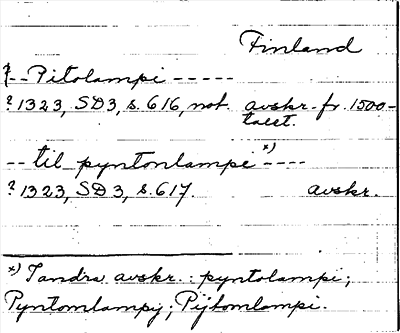 Finland
?-- Pitolampi -----
? 1323, SD3, s. 616, not. avskr. fr. 1500-
talet.
-- til pyntonlampi *) ----
? 1323, SD3, s. 617. avskr.
*) I andra avskr.: pyntolampi;
Pyntomlampij; Pijtomlampi.